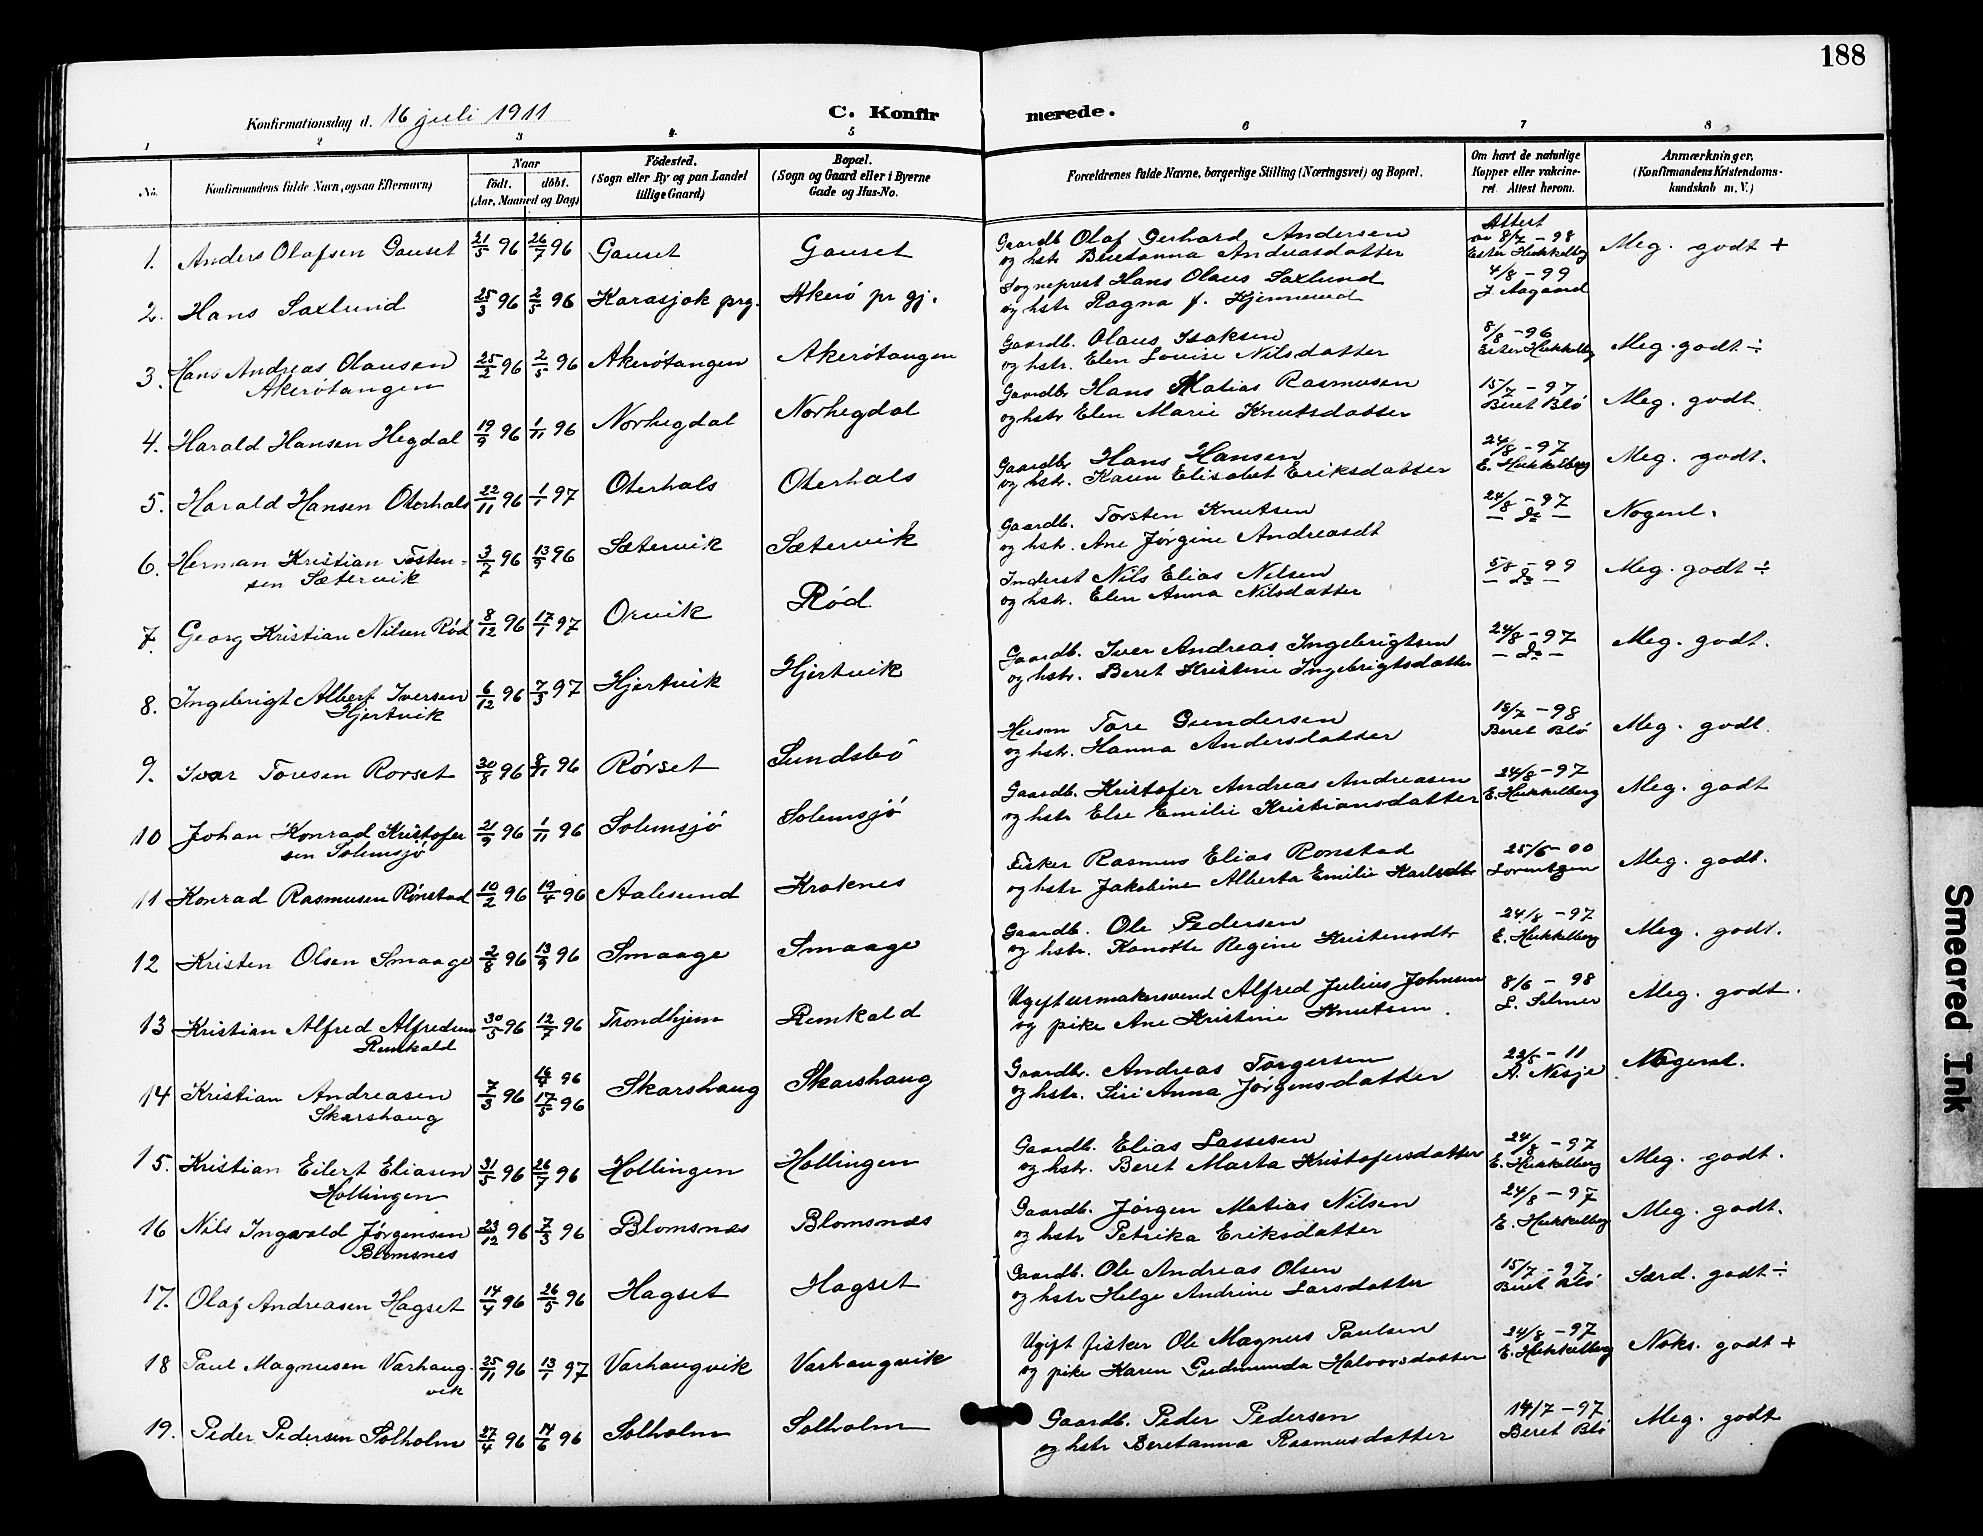 188
Konfirmationsdag d. 16 juli 1911
C. Konfirmerede.
1 2 3 4 5 6 7 8
No.
Konfirmandens fulde Navn, ogsaa Efternavn)
Naar
födt. döbt.
(Aar, Maaned og Dag)
Födested.
(Sogn eller By og paa Landet
tillige Gaard)
Bopæl.
(Sogn og Gaard eller i Byerne
Gade og Hus-No.
Forældrenes fulde Navne, borgerlige Stilling (Næringsvei) og Bopæl.
Om havt de naturlige
Kopper eller vakcine-
ret. Attest herom.
Anmærkninger.
(Konfirmandens Kristendoms-
kundskab m. V.)
1. Anders Olafsen Gauset 21/5 96 26/7 96 Gauset Gauset
Gaardb Olaf Gerhard Andersen
og hstr Beretanna Andreasdatter
Attest
av 8/7 - 98
Ester Hukkelbg
Meg. godt +
2. Hans Saxlund 25/3 96 2/5 96 Karasjok prg. Akerö pr gj.
Sogneprest Hans Olaus Saxlund
og hstr Ragna f. Kjennerud
4/8 - 99
J. Aagaard
3. Hans Andreas Olausen
Akerötangen
25/2 96 2/5 96 Akerötangen Akerötangen
Gaardb. Olaus Isaksen
og hstr. Elen Lovise Nilsdatter
8/8 - 96
Ester Hukkelbg
Meg. godt ÷
4. Harald Hansen Hegdal 19/9 96 1/11 96 Norhegdal Norhegdal
Gaardbr Hans Matias Rasmusen
og hstr Elen Marie Knutsdatter
15/7 - 97
Beret Blö
Meg. godt
5. Harald Hansen Oterhals 22/11 96 1/1 97 Oterhals Oterhals
Gaardbr Hans Hansen
og hstr. Karen Elisabet Eriksdatter
24/8 - 97
E. Hukkelberg
Meg. godt.
6. Herman Kristian Tosten-
sen Sætervik
3/7 96 13/9 96 Sætervik Sætervik
Gaardb. Torsten Knutsen
og hstr. Ane Jørgine Andreasdt
24/8 - 97
— Do —
Nogenl.
7. Georg Kristian Nilsen Rød 8/12 96 17/1 97 Orvik Rød
Inderst Nils Elias Nilsen
og hstr. Elen Anna Nilsdatter
5/8 - 99
— Do —
Meg. godt ÷
8. Ingebrigt Albert Iversen
Hjertvik
6/12 96 7/3 97 Hjertvik Hjertvik
Gaardb. Iver Andreas Ingebrigtsen
og hstr. Beret Kristine Ingebrigtsdatter
24/8 - 97
— Do —
Meg. godt.
9. Ivar Toresen Rorset 30/8 96 8/11 96 Rørset Sundsbö
Husm Tore Gundersen
og hstr. Hanna Andersdatter
18/7 - 98
Beret Blö
Meg. godt.
10 Johan Konrad Kristofer
sen Solemsjö
21/9 96 1/11 96 Solemsjö Solemsjö
Gaardb. Kristofer Andreas Andreasen
og hstr Else Emilie Kristiansdatter
24/8 - 97
E. Hukkelberg
Meg. godt
11 Konrad Rasmusen Rönstad 10/2 96 19/4 96 Aalesund Kraknes
Fisker Rasmus Elias Ronstad
og hstr Jakobine Alberta Emilie Karlsdtr
25/6 - 00
Lorentzen
Meg. godt.
12 Kristen Olsen Smaage 2/8 96 13/9 96 Smaage Smaage
Gaardb. Ole Pedersen
og hstr. Kanotte Regine Kristensdtr
24/8 - 97
E. Hukkelberg
Meg. godt.
13 Kristian Alfred Alfredsen
Remkald
30/5 96 12/7 96 Trondhjem Remkald
Ugift urmakersvend Alfred Julius Johnsen
og pike Ane Kristine Knutsen.
8/6 - 98
L. Selmer
Meg. godt.
14 Kristian Andreasen
Skarshaug
7/3 96 96
17/5 96
Skarshaug Skarshaug
Gaardbr. Andreas Torgersen
og hstr. Siri Anna Jørgensdatter
22/5 - 11
A. Nesje
Nogenl.
15. Kristian Eilert Eliasen
Hollingen
31/5 96 26/7 96 Hollingen Hollingen
Gaardb. Elias Lassesen
og hstr. Beret Marta Kristofersdatter
24/8 - 97
E. Hukkelberg
Meg. godt.
16 Nils Ingvald Jørgensen
Blomsnes
23/12 96 7/3 96 Blomsnæs Blomsnæs
Gaardb. Jørgen Matias Nilsen
og hstr Petrika Eriksdatter
24/8 - 97
E. Hukkelbg
Meg. godt.
17. Olaf Andreasen Hagset 14/4 96 26/5 96 Hagset Hagset
Gaardb. Ole Andreas Olsen
og hstr Helge Andrine Larsdatter
15/7 - 97
Beret Blö
Særd. godt ÷
18 Paul Magnusen Varhaug-
vik
25/11 96 13/1 97 Varhaugvik Varhaugvik
Ugift fisker Ole Magnus Paulsen
og pike Karen Gudmunda Halvorsdatter
24/8 - 97
E. Hukkelberg
Noks. godt +
19. Peder Pedersen Solholm 27/4 96 14/6 96 Solholm Solholm
Gaardb. Peder Pedersen
og hstr Beretanna Rasmusdatter
14/7 - 97
Beret Blö
Meg. godt
Smeared Ink